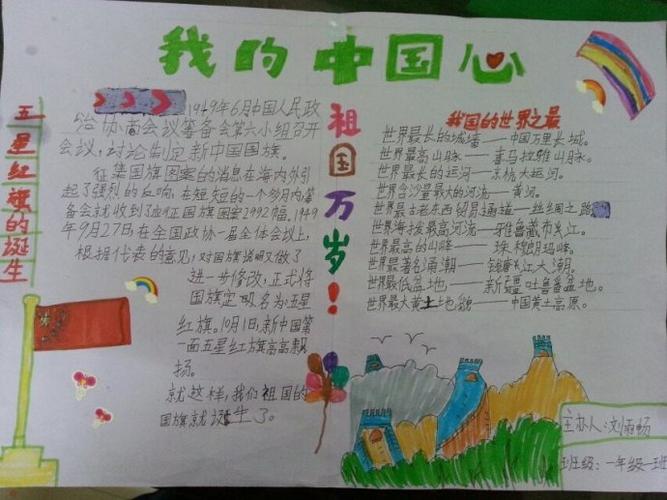 我的中国心
五星红旗的诞生
1949年6月中国人民政
治协商会议筹备会第六小组召开
会议，讨论制定新中国国旗。
征集国旗图案的消息在海内外引
起了强烈的反响，在短短的一个多月内，筹
备会就收到了应征国旗图案2992幅。1949
年9月27日在全国政协一届全体会议上，
根据代表的意见，对国旗说明又做了
进一步修改，正式将
国旗定名为五星
红旗。10月1日，新中国第
一面五星红旗高高飘
扬。
就这样，我们祖国的
国旗就诞生了。
祖国万岁！
我国的世界之最
世界最长的城墙——中国万里长城。
世界最高山脉——喜马拉雅山脉。
世界最长的运河——京杭大运河。
世界含沙量最大的河流——黄河。
世界最古老东西贸易通道——丝绸之路
世界海拔最高河流——雅鲁藏布江。
世界最高的山峰——珠穆朗玛峰。
世界最著名涌潮——钱塘江大潮。
世界最低盆地——新疆吐鲁番盆地。
世界最大黄土地貌——中国黄土高原。
主办人：刘雨畅
班级：一年级一班